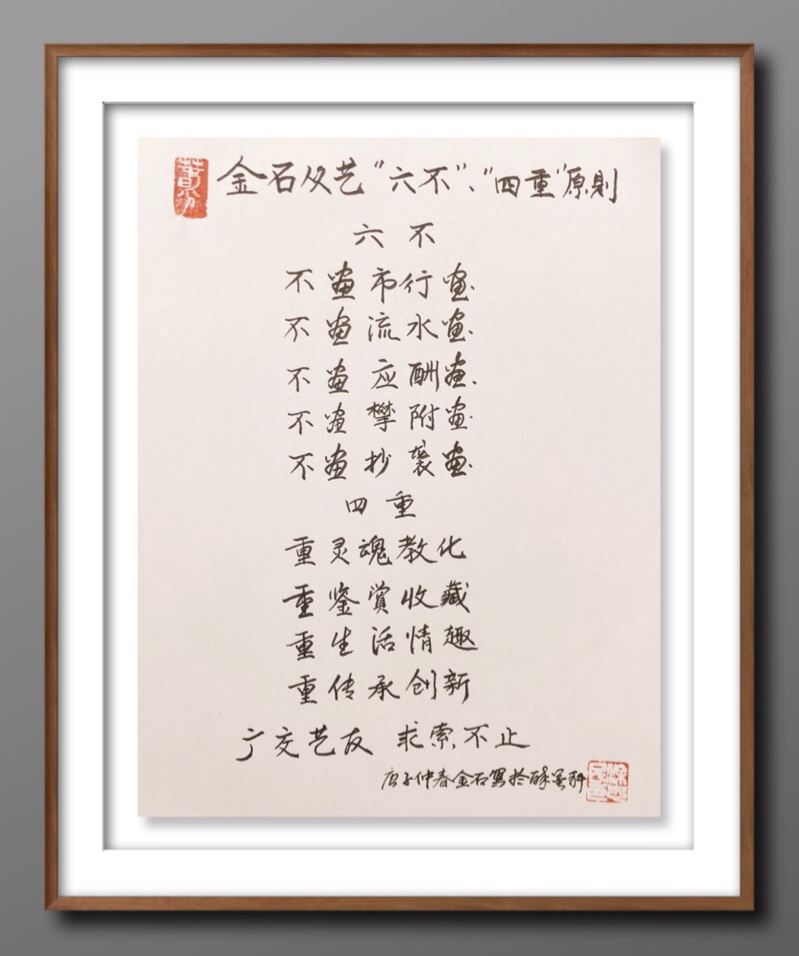 金石从艺“六不”、“四重”原则
六不
不画市行画.
不画流水画.
不画应酬画.
不画攀附画.
不画抄袭画.
四重
重灵魂教化
重鉴赏收藏
重生活情趣
重传承创新
广交艺友 求索不止
庚子仲春金石写於